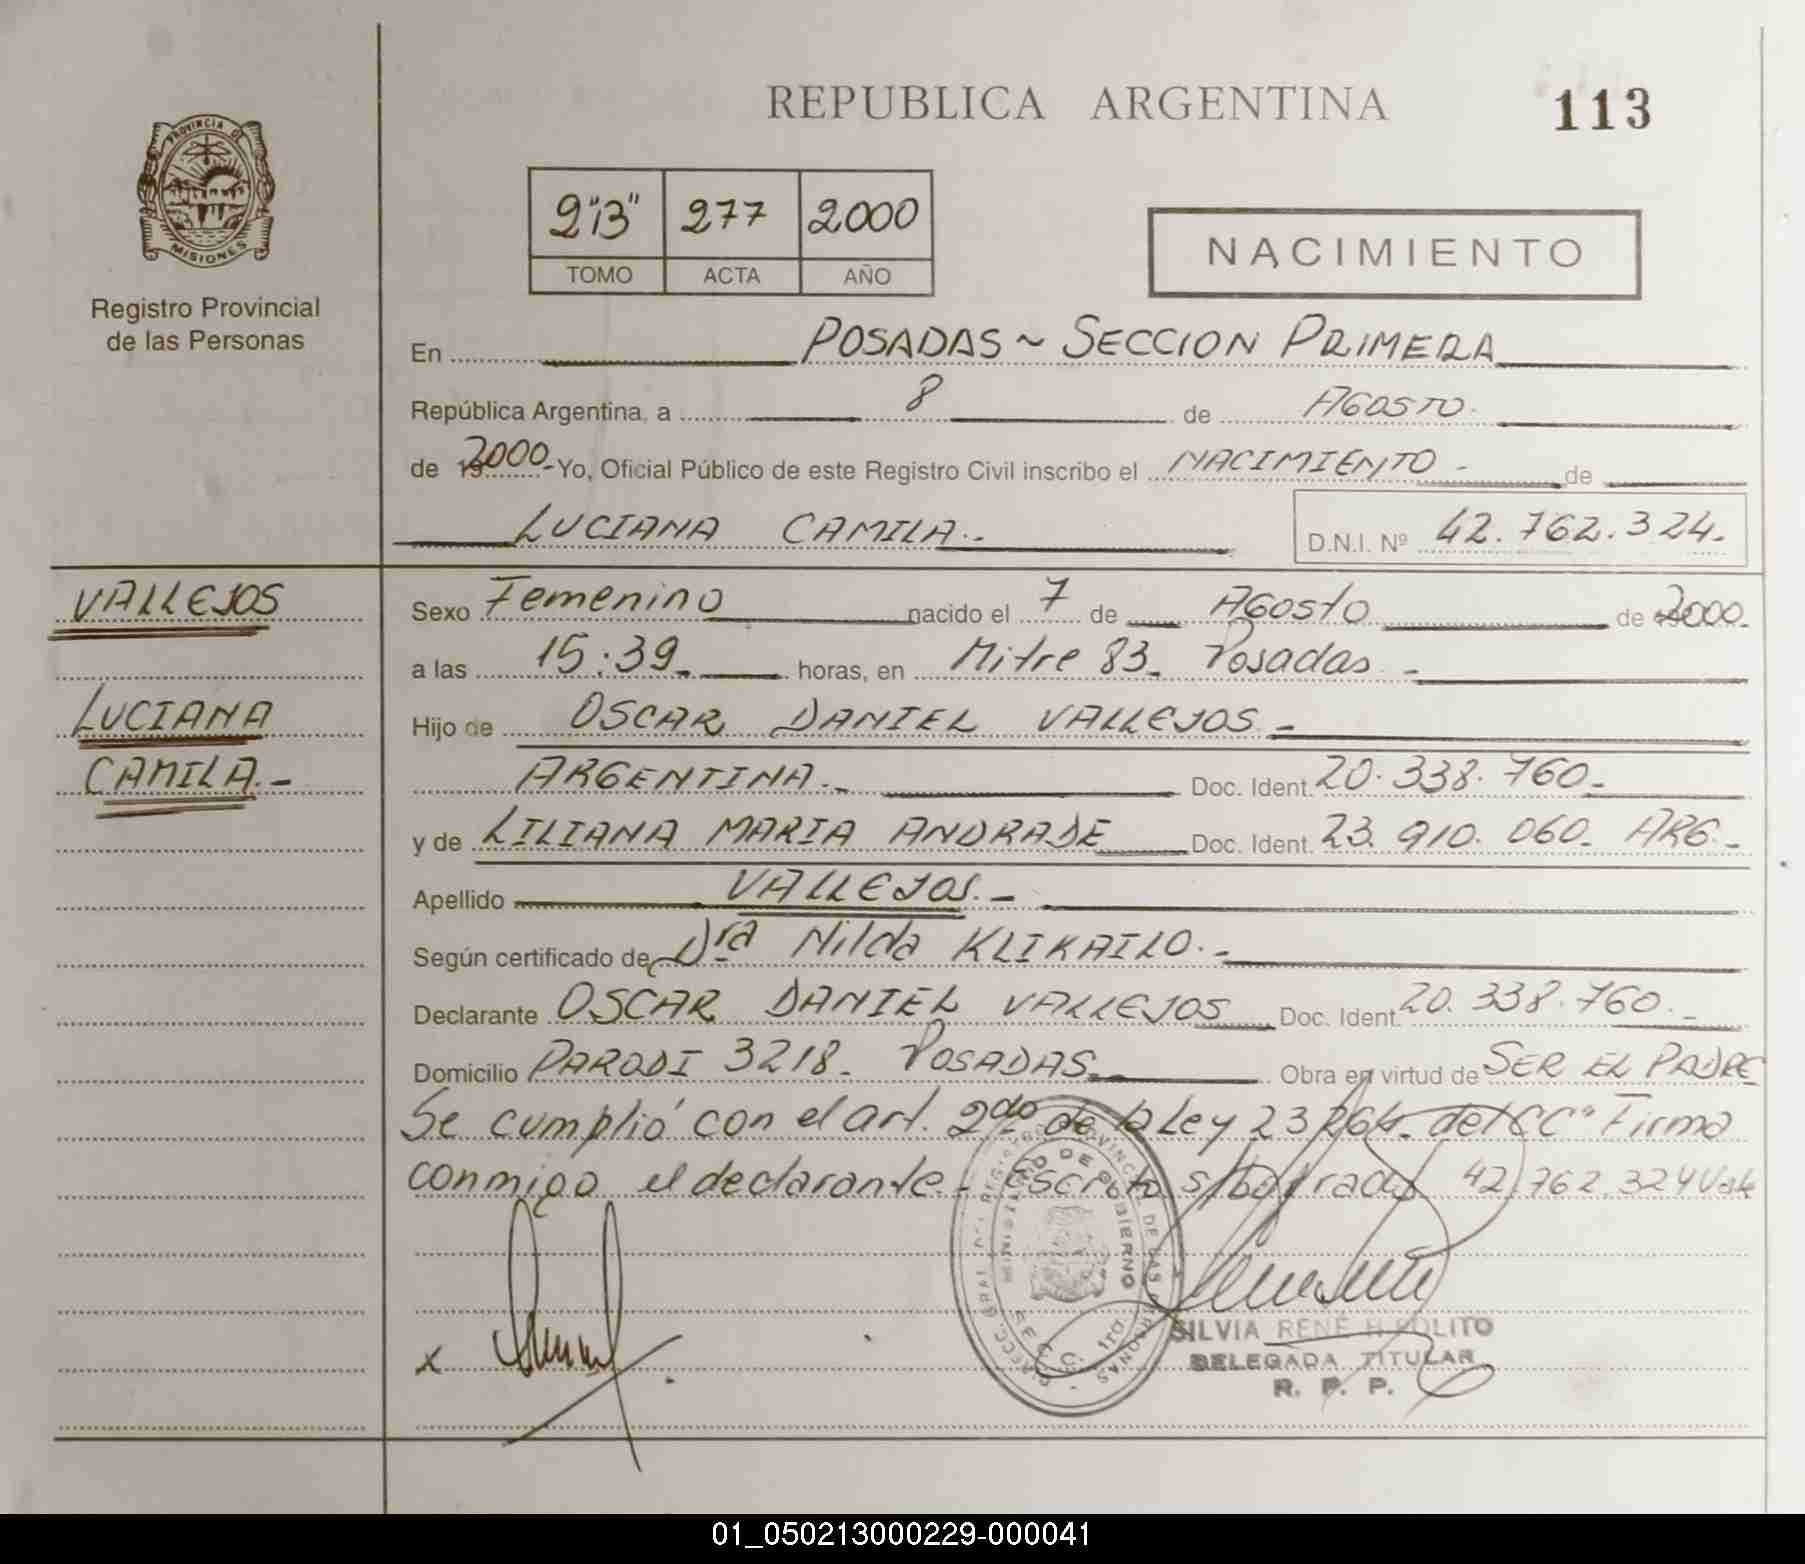 REPUBLICA ARGENTINA
113
PROVINCIA DE MISIONES
Registro Provincial
de las Personas
2"B" 277 2000
TOMO ACTA AÑO
NACIMIENTO
En POSADAS ~ SECCION PRIMERA
República Argentina, a 8 de AGOSTO.
de 2000 - Yo, Oficial Público de este Registro Civil inscribo el NACIMIENTO - de
LUCIANA CAMILA.- D.N.I. Nº 42.762.324.
VALLEJOS
LUCIANA
CAMILA.-
Sexo Femenino nacido el 7 de AGosto de 2000.
a las 15:39 horas, en Mitre 83_ Posadas -
Hijo de OSCAR DANIEL VALLEJOS -
ARGENTINA.- Doc. Ident. 20.338.760-
y de LILIANA MARIA ANDRADE Doc. Ident. 23.910.060_ ARG.-
Apellido VALLEJOS.-
Según certificado de Dra Nilda KLIKAILO.-
Declarante OSCAR DANIEL VALLEJOS Doc. Ident. 20.338.760.-
Domicilio PARODI 3218_ POSADAS Obra en virtud de SER EL PADRE
Se cumplió con el art. 2do de la Ley 23264_ del CCº Firma
conmigo el declarante - Escrito s/ 42.762.324 Vale
MINISTERIO DE GOBIERNO
SECC. 1ra.
x
SILVIA RENÉ HIPOLITO
DELEGADA TITULAR
R. P. P.
01_050213000229-000041